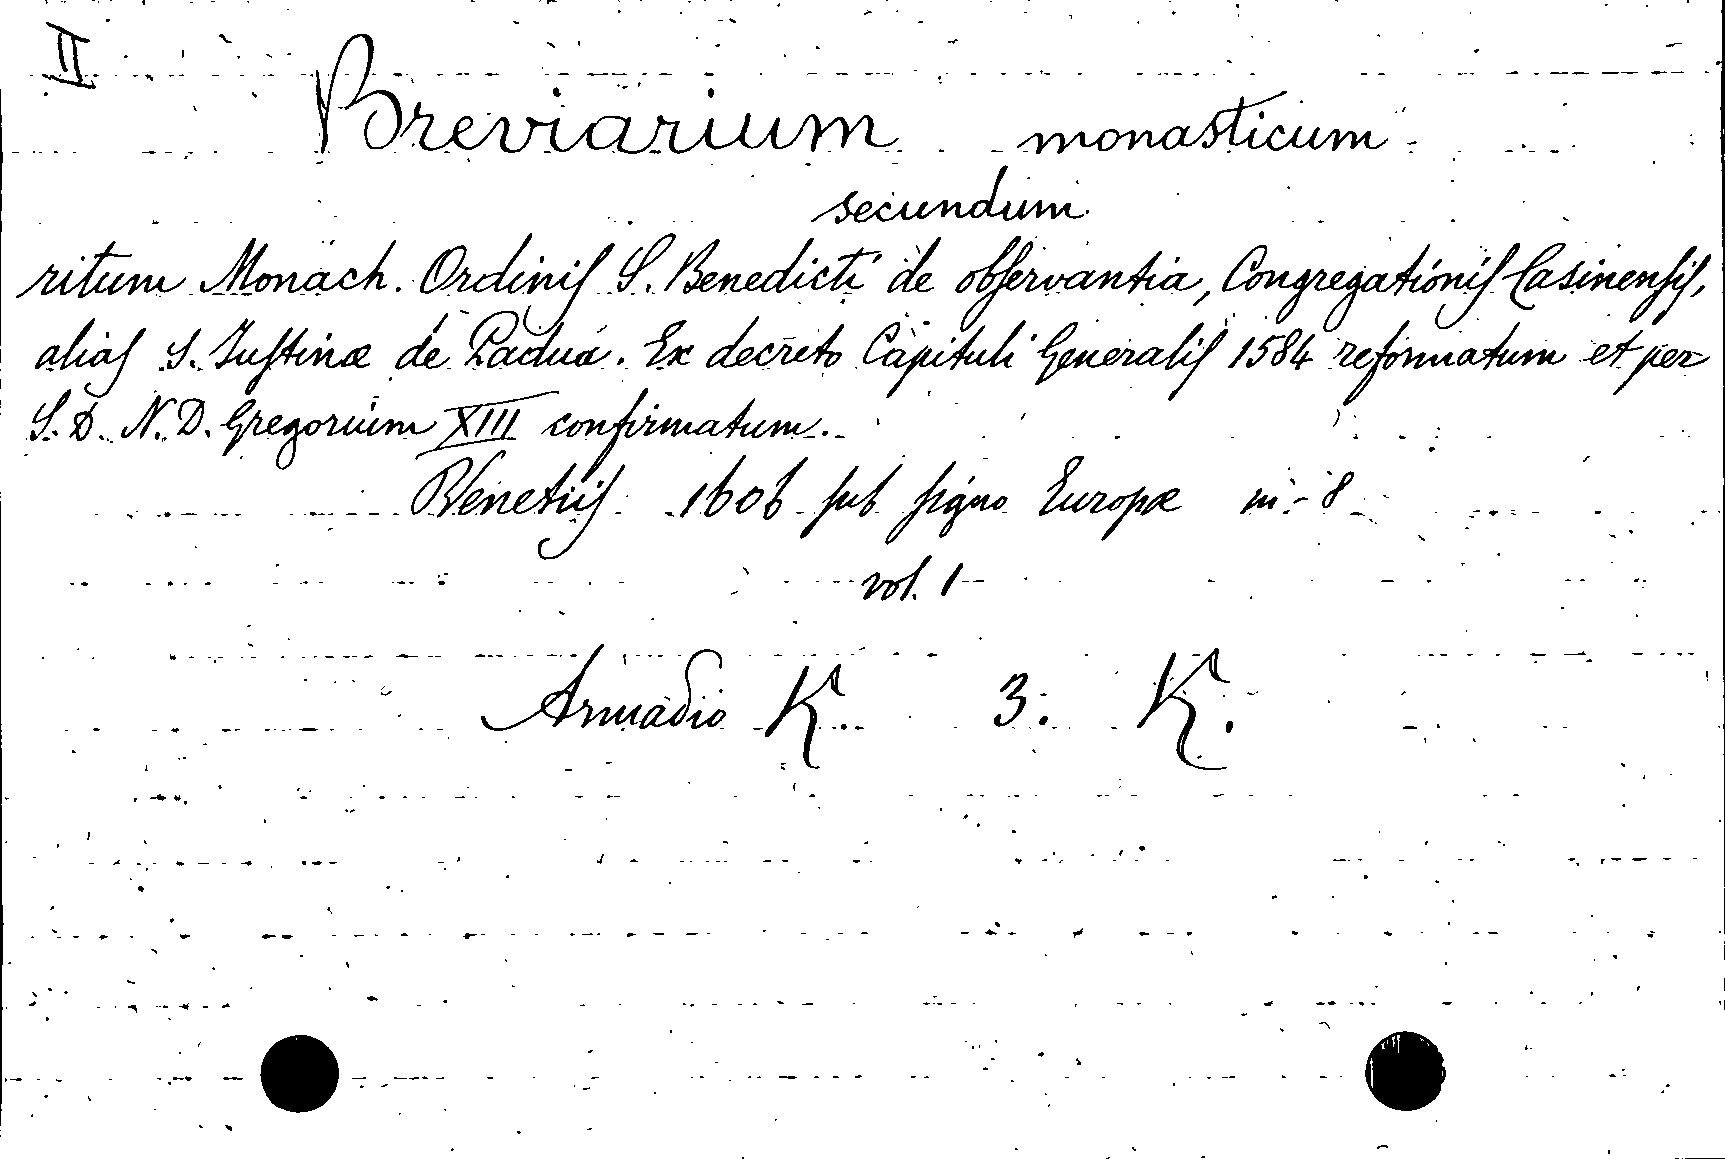 II
Breviarium monasticum
secundum
ritum Monach. Ordinis S. Benedicti de observantia, Congregationis Casinensis,
alias S. Justinæ de Padua. Ex decreto Capituli Generalis 1584 reformatum et per
S. D. N. D. Gregorium XIII confirmatum.
Venetiis 1606 sub signo Europæ in-8
vol. 1
Armadio K. 3. K.